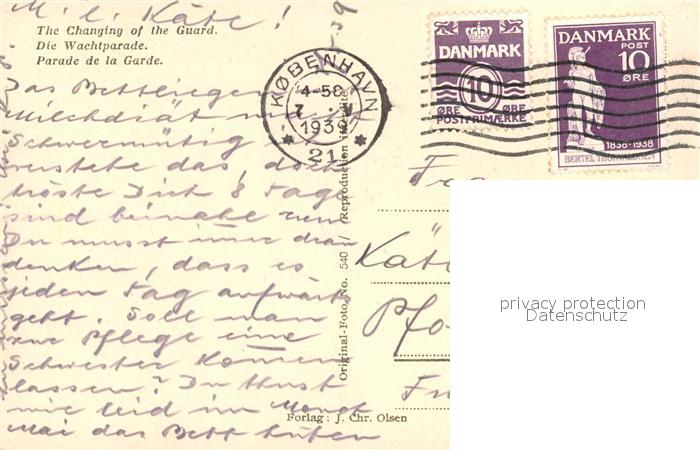 M. l. Käte!
The Changing of the Guard.
Die Wachtparade.
Parade de la Garde.
Das Bettliegen
Milchdiät macht
Schwermütig
verstehe das, doch
tröste Dich 8 Tage
sind beinahe rum
Du musst immer dran
denken, dass es
jeden Tag aufwärts
geht. Soll man
zur Pflege eine
Schwester kommen
lassen? Du thust
mir leid im Monat
Mai das Bett hüten
KØBENHAVN
1939
21
DANMARK
10
ØRE ØRE
POSTFRIMÆRKE
DANMARK
POST
10
ØRE
1838-1938
BERTEL THORVALDSEN
Käte
Original-Foto No. 540 / Reproduction interdite
Forlag: J. Chr. Olsen
privacy protection
Datenschutz